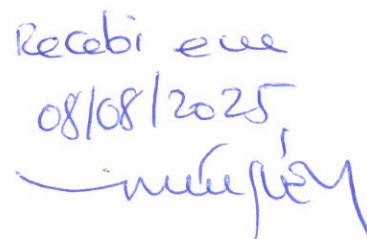 Recebi em
08/08/2025